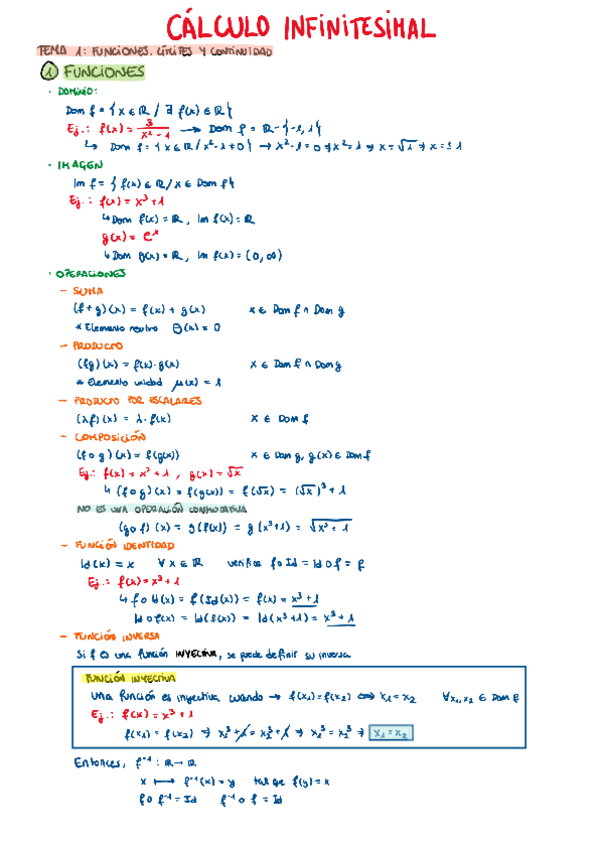 CÁLCULO INFINITESIMAL
TEMA 1: FUNCIONES. LÍMITES Y CONTINUIDAD
① FUNCIONES
· DOMINIO:
Dom f = { x ∈ ℝ / ∃ f(x) ∈ ℝ }
Ej.: f(x) = 3/(x² - 1) → Dom f = ℝ - {-1, 1}
↳ Dom f = { x ∈ ℝ / x² - 1 ≠ 0 } → x² - 1 = 0 ⇒ x² = 1 ⇒ x = √1 ⇒ x = ± 1
· IMAGEN
Im f = { f(x) ∈ ℝ / x ∈ Dom f }
Ej.: f(x) = x³ + 1
↳ Dom f(x) = ℝ, Im f(x) = ℝ
g(x) = eˣ
↳ Dom g(x) = ℝ, Im f(x) = (0, ∞)
· OPERACIONES
- SUMA
(f + g)(x) = f(x) + g(x) x ∈ Dom f ∩ Dom g
* Elemento neutro θ(x) = 0
- PRODUCTO
(fg)(x) = f(x) · g(x) x ∈ Dom f ∩ Dom g
* Elemento unidad μ(x) = 1
- PRODUCTO POR ESCALARES
(λf)(x) = λ · f(x) x ∈ Dom f
- COMPOSICIÓN
(f o g)(x) = f(g(x)) x ∈ Dom g, g(x) ∈ Dom f
Ej.: f(x) = x³ + 1, g(x) = √x
↳ (f o g)(x) = f(g(x)) = f(√x) = (√x)³ + 1
NO ES UNA OPERACIÓN CONMUTATIVA
(g o f)(x) = g(f(x)) = g(x³+1) = √(x³ + 1)
- FUNCIÓN IDENTIDAD
Id(x) = x ∀ x ∈ ℝ verifica f o Id = Id o f = f
Ej.: f(x) = x³ + 1
↳ f o Id(x) = f(Id(x)) = f(x) = x³ + 1
Id o f(x) = Id(f(x)) = Id(x³ + 1) = x³ + 1
- FUNCIÓN INVERSA
Si f es una función INYECTIVA, se puede definir su inversa
FUNCIÓN INYECTIVA
Una función es inyectiva cuando → f(x₁) = f(x₂) ⟺ x₁ = x₂ ∀ x₁, x₂ ∈ Dom f
Ej.: f(x) = x³ + 1
f(x₁) = f(x₂) ⇒ x₁³ + 1 = x₂³ + 1 ⇒ x₁³ = x₂³ ⇒ x₁ = x₂
Entonces, f⁻¹ : ℝ → ℝ
x ⟼ f⁻¹(x) = y tal que f(y) = x
f o f⁻¹ = Id f⁻¹ o f = Id